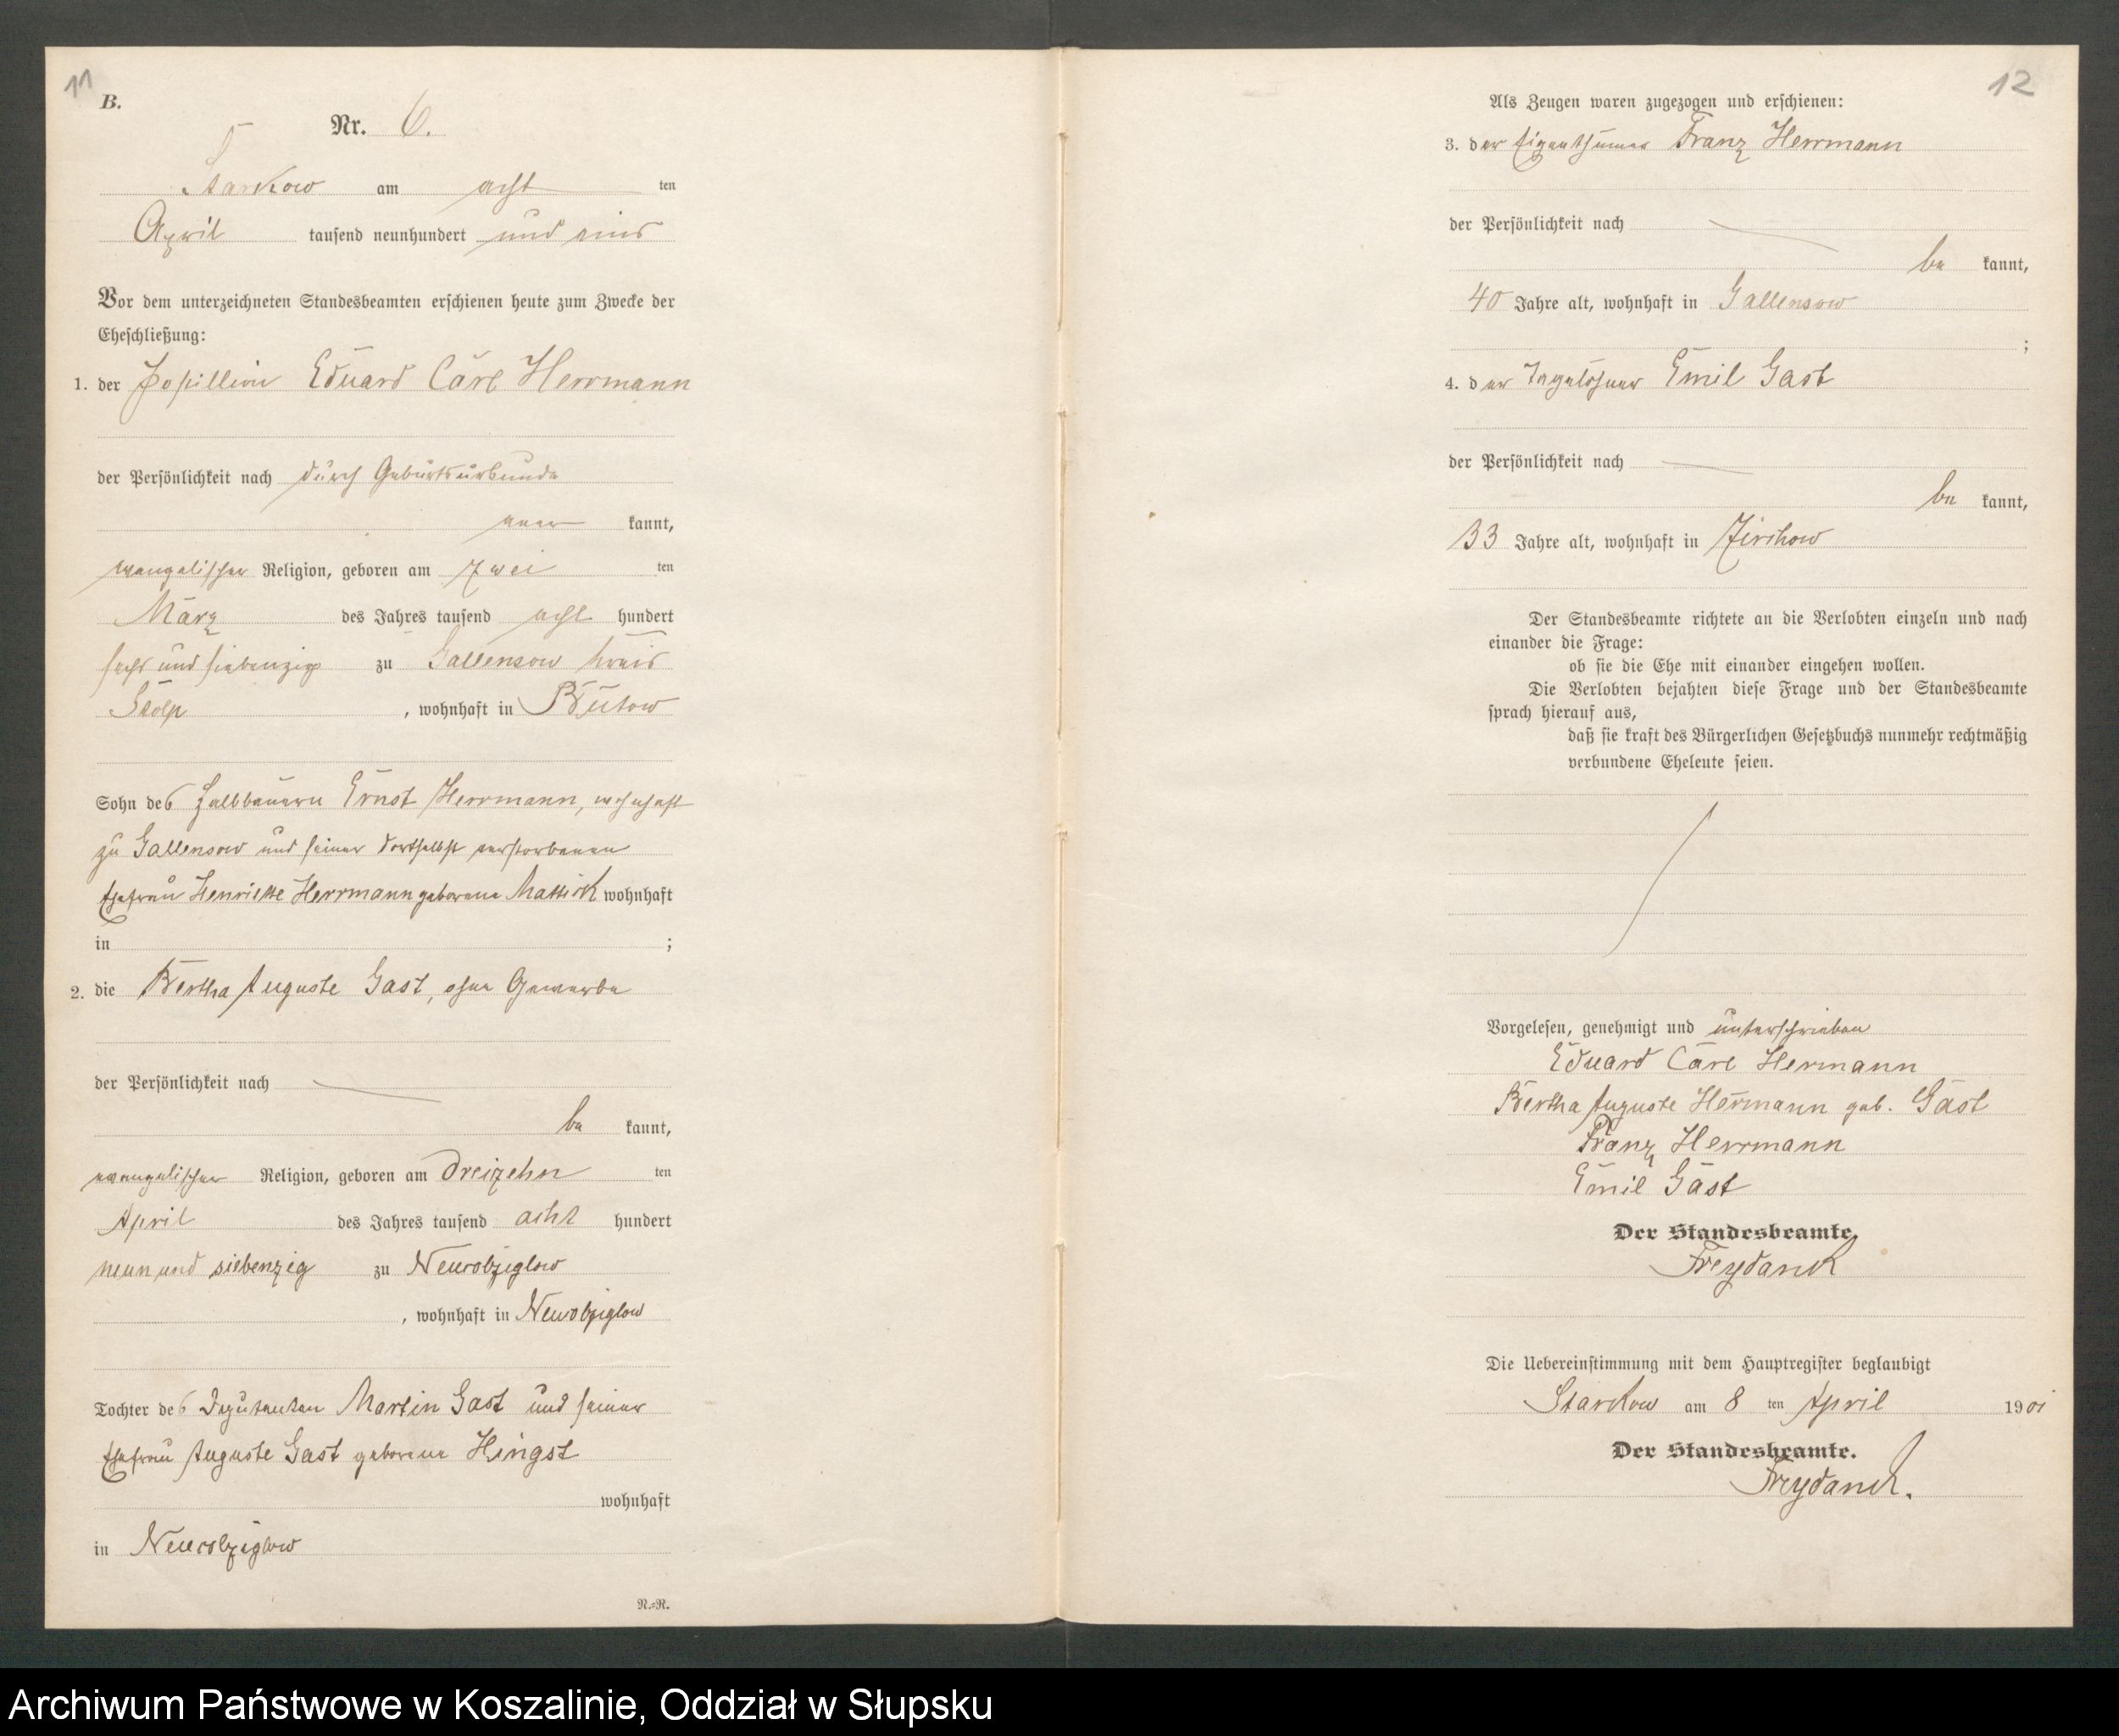 11
B.
Nr. 6.
Starkow am acht ten
April tausend neunhundert und eins
Vor dem unterzeichneten Standesbeamten erschienen heute zum Zwecke der
Eheschließung:
1. der Postillion Eduard Carl Herrmann
der Persönlichkeit nach durch Geburtsurkunde
aner kannt,
evangelischer Religion, geboren am zwei ten
März des Jahres tausend acht hundert
sechs und siebenzig zu Gallensow Kreis
Stolp , wohnhaft in Bütow
Sohn des Halbbauern Ernst Herrmann, wohnhaft
zu Gallensow und seiner dortselbst verstorbenen
Ehefrau Henriette Herrmann geborene Mattick wohnhaft
in ;
2. die Bertha Auguste Gast, ohne Gewerbe
der Persönlichkeit nach
be kannt,
evangelischer Religion, geboren am dreizehn ten
April des Jahres tausend acht hundert
neun und siebenzig zu Neucolziglow
, wohnhaft in Neucolziglow
Tochter des Deputanten Martin Gast und seiner
Ehefrau Auguste Gast geborene Hingst
wohnhaft
in Neucolziglow
N.=R.
12
Als Zeugen waren zugezogen und erschienen:
3. der Eigenthümer Franz Herrmann
der Persönlichkeit nach
be kannt,
40 Jahre alt, wohnhaft in Gallensow
;
4. der Tagelöhner Emil Gast
der Persönlichkeit nach
be kannt,
33 Jahre alt, wohnhaft in Zirchow
Der Standesbeamte richtete an die Verlobten einzeln und nach
einander die Frage:
ob sie die Ehe mit einander eingehen wollen.
Die Verlobten bejahten diese Frage und der Standesbeamte
sprach hierauf aus,
daß sie kraft des Bürgerlichen Gesetzbuchs nunmehr rechtmäßig
verbundene Eheleute seien.
Vorgelesen, genehmigt und unterschrieben
Eduard Carl Hermann
Bertha Auguste Hermann geb. Gast
Franz Herrmann
Emil Gast
Der Standesbeamte.
Freydanck
Die Uebereinstimmung mit dem Hauptregister beglaubigt
Starkow am 8 ten April 1901
Der Standesbeamte.
Freydanck.
Archiwum Państwowe w Koszalinie, Oddział w Słupsku